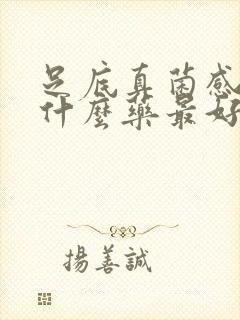 足底真菌感
什麼藥最好
揚善誠